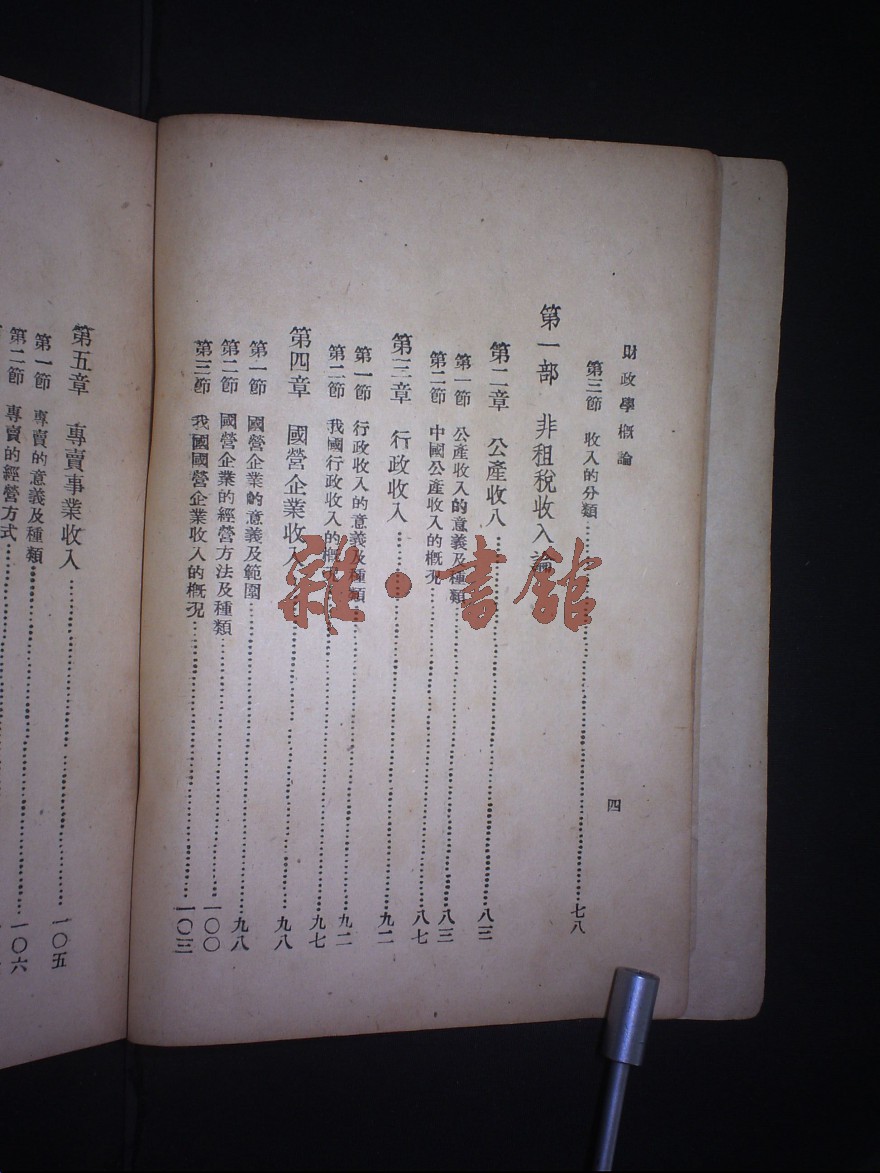 財政學概論
四
第三節 收入的分類……七八
第一部 非租稅收入論
第二章 公產收入……八三
第一節 公產收入的意義及種類……八三
第二節 中國公產收入的概況……八七
第三章 行政收入……九二
第一節 行政收入的意義及種類……九二
第二節 我國行政收入的概況……九七
第四章 國營企業收入……九八
第一節 國營企業的意義及範圍……九八
第二節 國營企業的經營方法及種類……一〇〇
第三節 我國國營企業收入的概況……一〇三
第五章 專賣事業收入……一〇五
第一節 專賣的意義及種類……一〇六
第二節 專賣的經營方式……
雜·書館